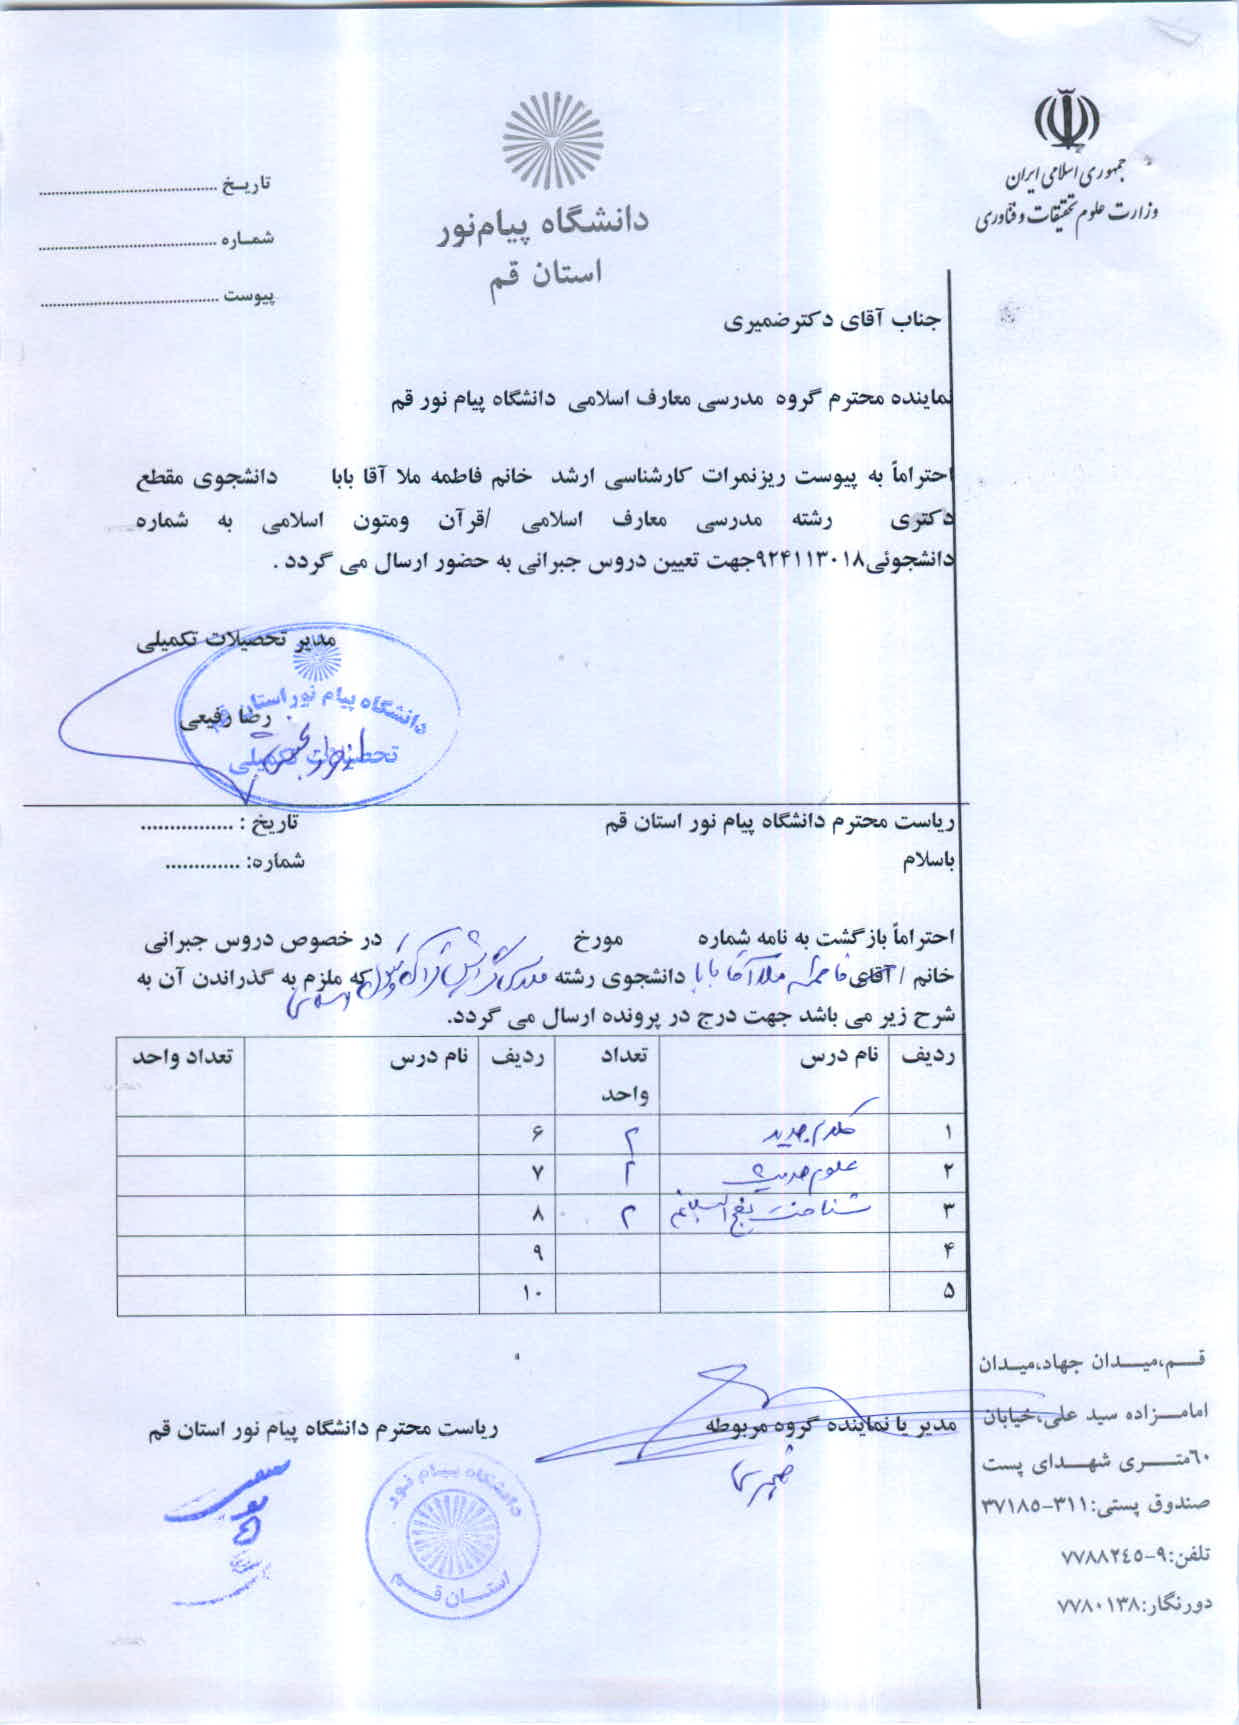 جمهوری اسلامی ایران
وزارت علوم تحقیقات و فناوری
دانشگاه پیام‌نور
استان قم
تاریـخ ........................................
شمـاره ........................................
پیوست ........................................
جناب آقای دکترضمیری
نماینده محترم گروه مدرسی معارف اسلامی دانشگاه پیام نور قم
احتراماً به پیوست ریزنمرات کارشناسی ارشد خانم فاطمه ملا آقا بابا دانشجوی مقطع
دکتری رشته مدرسی معارف اسلامی /قرآن ومتون اسلامی به شماره
دانشجوئی۹۲۴۱۱۳۰۱۸جهت تعیین دروس جبرانی به حضور ارسال می گردد .
مدیر تحصیلات تکمیلی
رضا رفیعی
دانشگاه پیام نور استان قم
تحصیلات تکمیلی
ریاست محترم دانشگاه پیام نور استان قم
تاریخ : ................
باسلام
شماره: .............
احتراماً بازگشت به نامه شماره مورخ در خصوص دروس جبرانی
خانم / آقای فاطمه ملا آقا بابا دانشجوی رشته مدرسی گرایش قرآن و متون اسلامی که ملزم به گذراندن آن به
شرح زیر می باشد جهت درج در پرونده ارسال می گردد.
ردیف نام درس تعداد واحد ردیف نام درس تعداد واحد
۱ کلام جدید ۲ ۶
۲ علوم حدیث ۲ ۷
۳ شناخت نهج البلاغه ۲ ۸
۴ ۹
۵ ۱۰
مدیر یا نماینده گروه مربوطه
ضمیری
ریاست محترم دانشگاه پیام نور استان قم
دانشگاه پیام نور
استـان قـم
قــم،میــدان جهاد،میـدان
امامــزاده سید علی،خیابان
٦٠متــری شهــدای پست
صندوق پستی:۳۱۱-۳۷۱۸٥
تلفن:۹-۷۷۸۸۲٤٥
دورنگار:۷۷۸۰۱۳۸